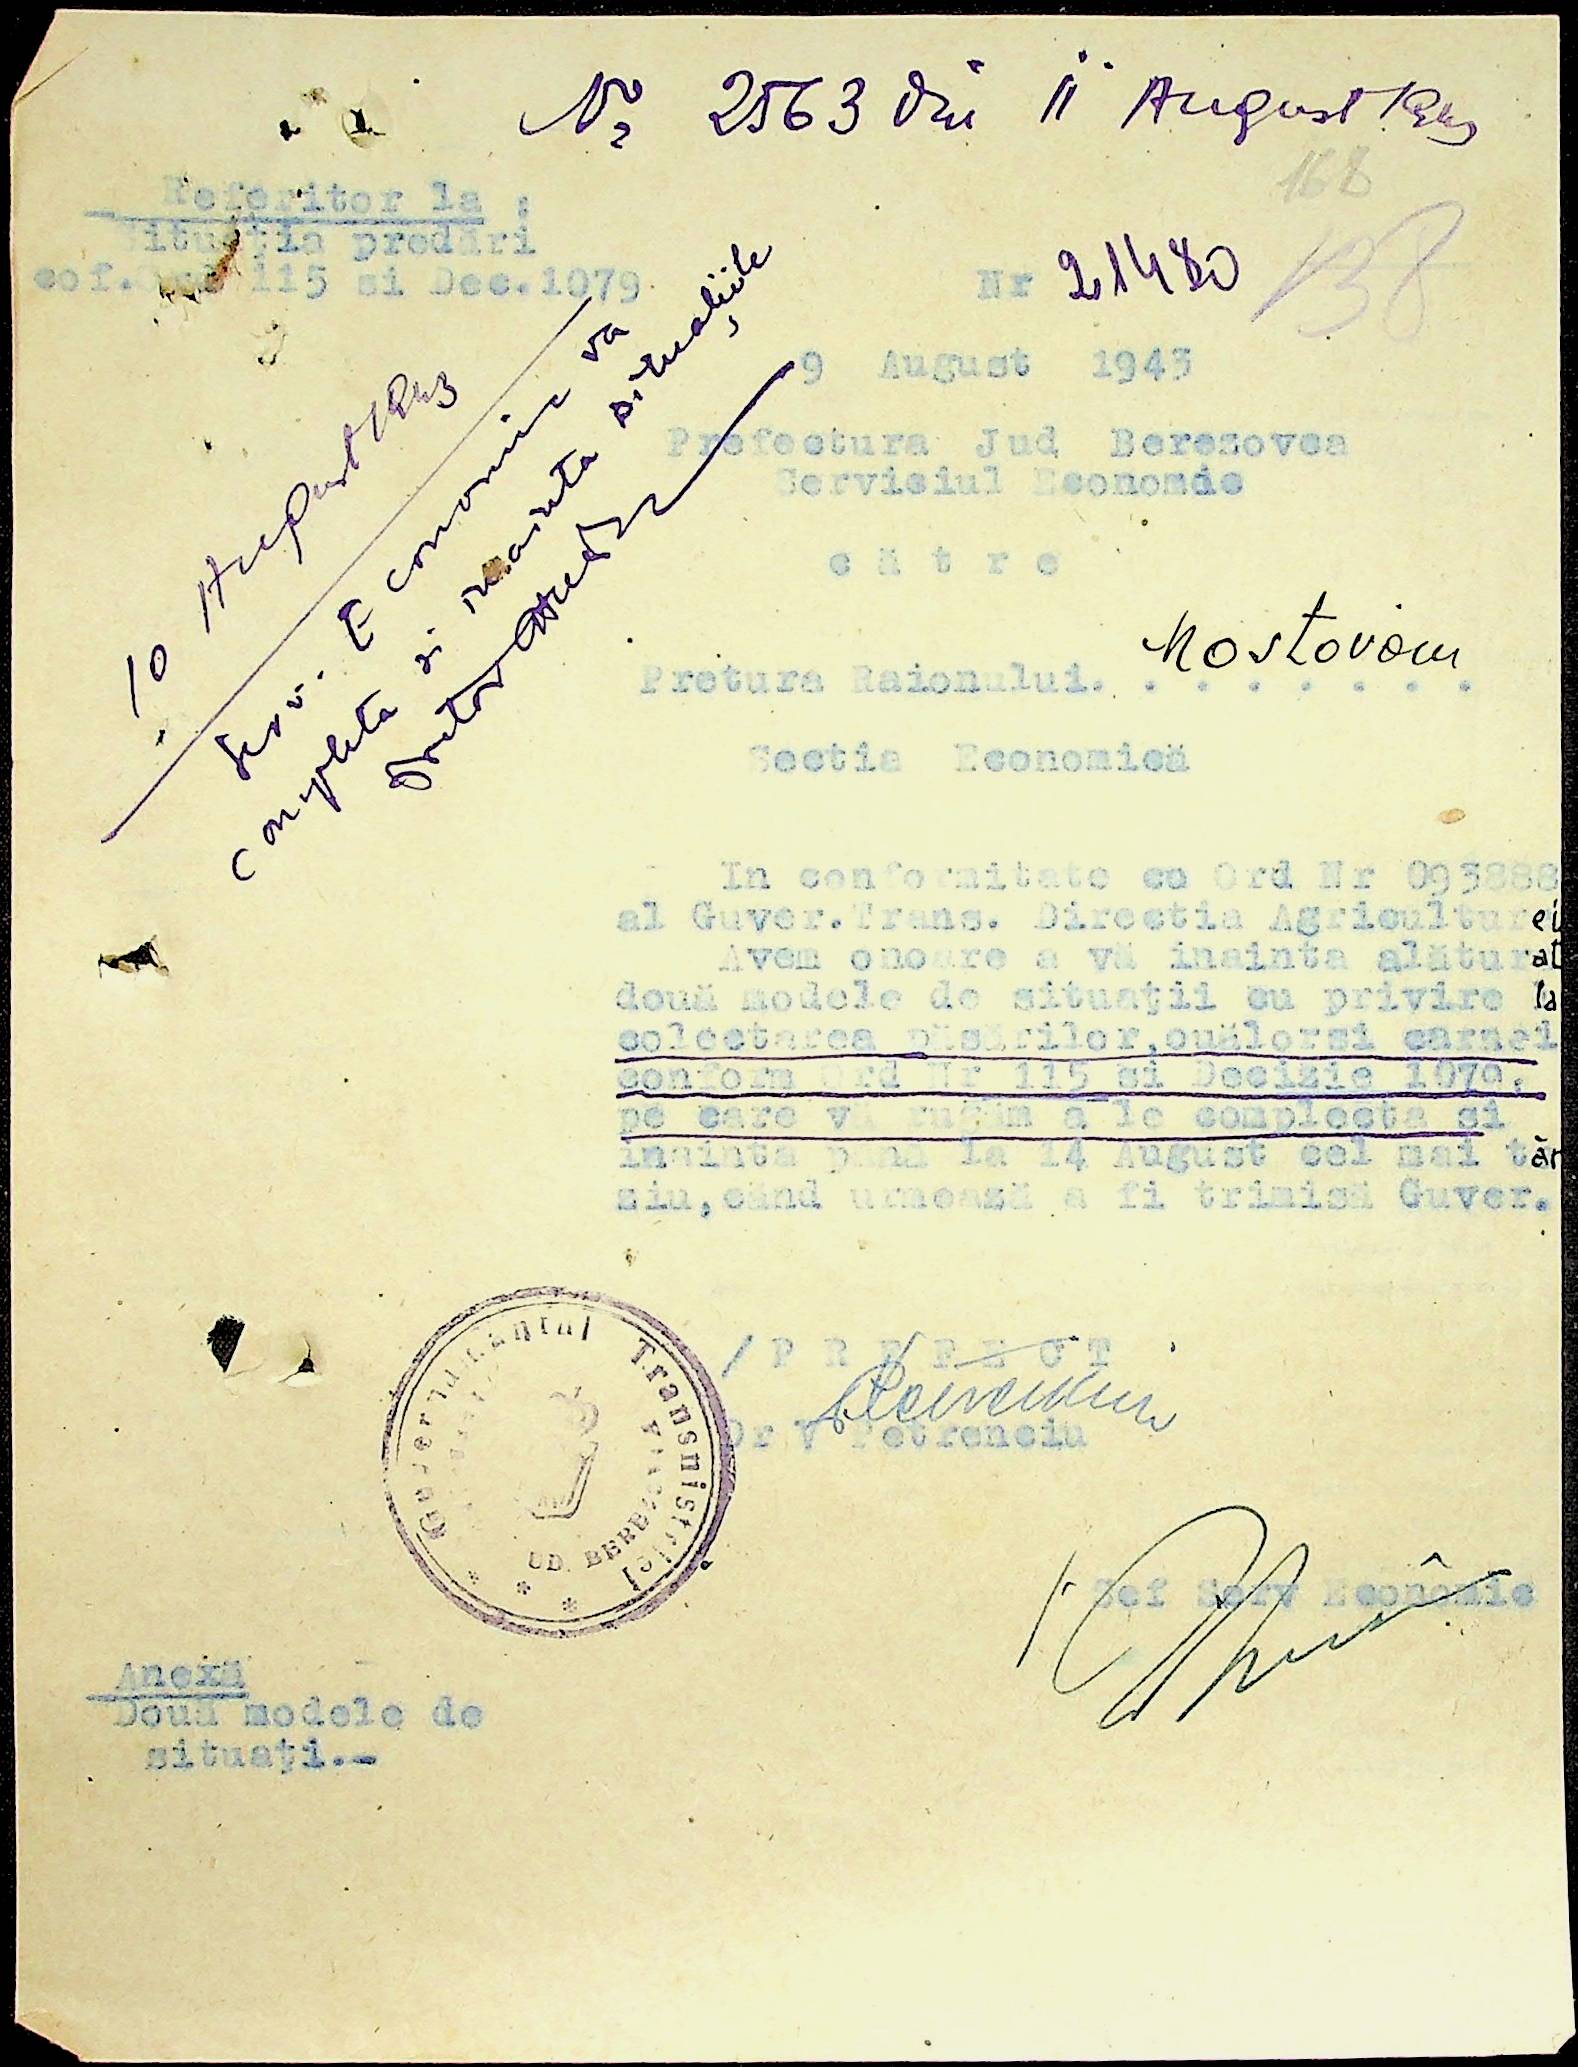 No 2563 din 11 August 1943
168
Referitor la :
Situația predări
cof. Ord 115 si Dec.1079
Nr 21480
138
9 August 1943
Prefectura Jud Beresovca
Serviciul Economic
către
Pretura Raionului. Mostovoiu
Sectia Economică
10 August 1943
Serv. Economic va
completa si inainta situațiile
Pretor
In conformitate cu Ord Nr 093888
al Guver.Trans. Directia Agriculturei
Avem onoare a vă inainta alăturat
două modele de situații cu privire la
colectarea păsărilor,ouălorsi carnei
conform Ord Nr 115 si Decizie 1079.
pe care vă rugăm a le complecta si
inainta până la 14 August cel mai tăr
siu,când urmează a fi trimisă Guver.
/ PREFECT
Dr V Petrenciu
Guvernământul Transnistriei
JUD. BEREZOVCA
Sef Serv Economic
Anexă
Două modele de
situați.-